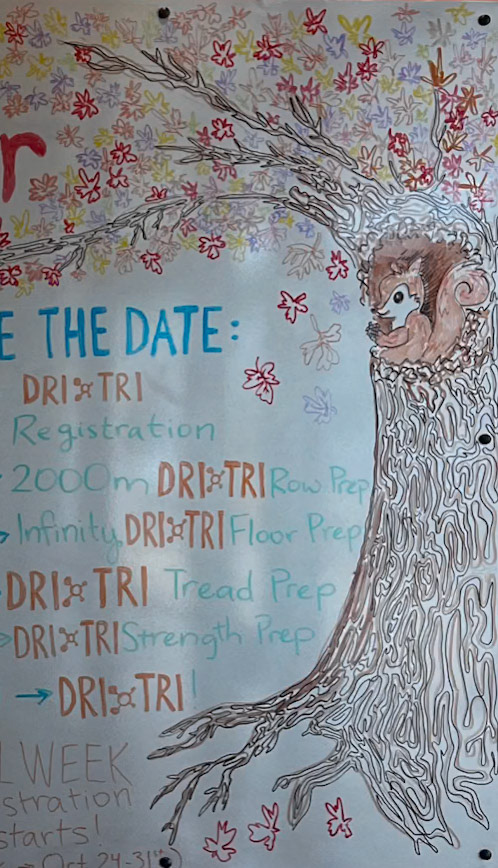 r
E THE DATE:
DRI TRI
Registration
2000m DRI TRI Row Prep
→ Infinity DRI TRI Floor Prep
DRI TRI Tread Prep
→ DRI TRI Strength Prep
→ DRI TRI!
L WEEK
stration
starts!
→ Oct 24-31st)